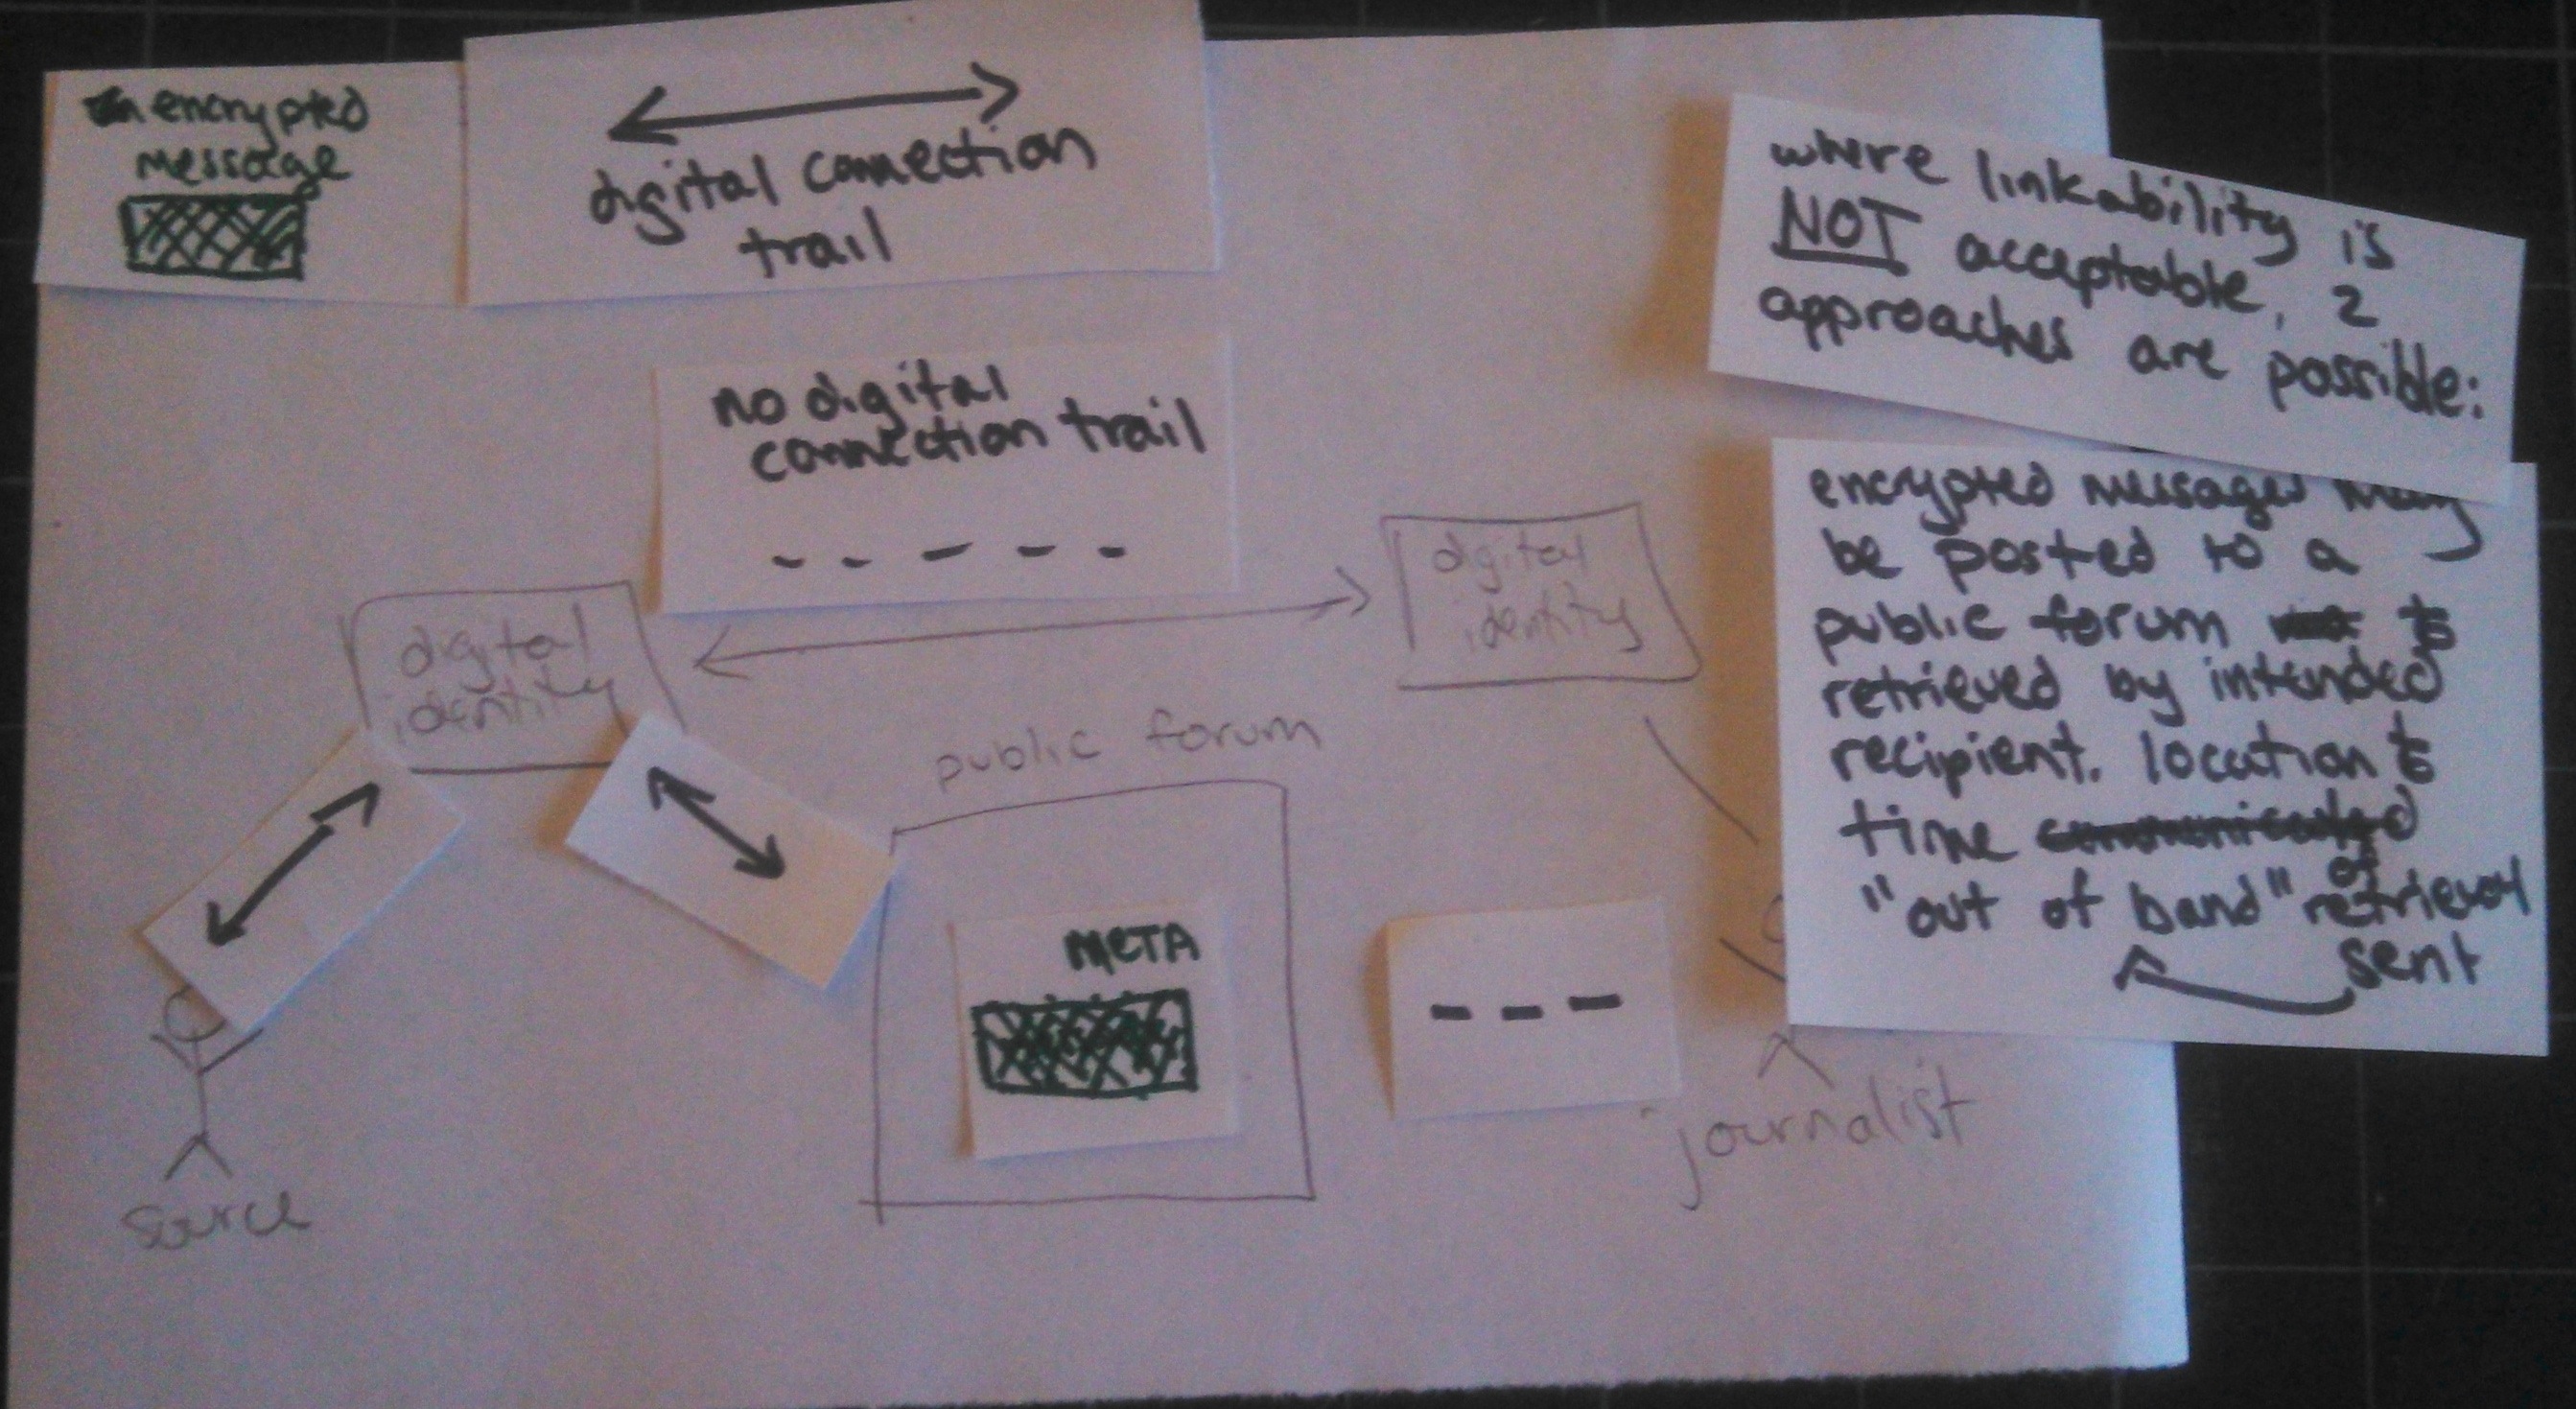 encrypted
message
digital connection
trail
no digital
connection trail
where linkability is
NOT acceptable, 2
approaches are possible:
encrypted messages may
be posted to a
public forum &
retrieved by intended
recipient. location &
time communicated
of
"out of band" retrieval
sent
digital
identity
digital
identity
public forum
META
source
journalist